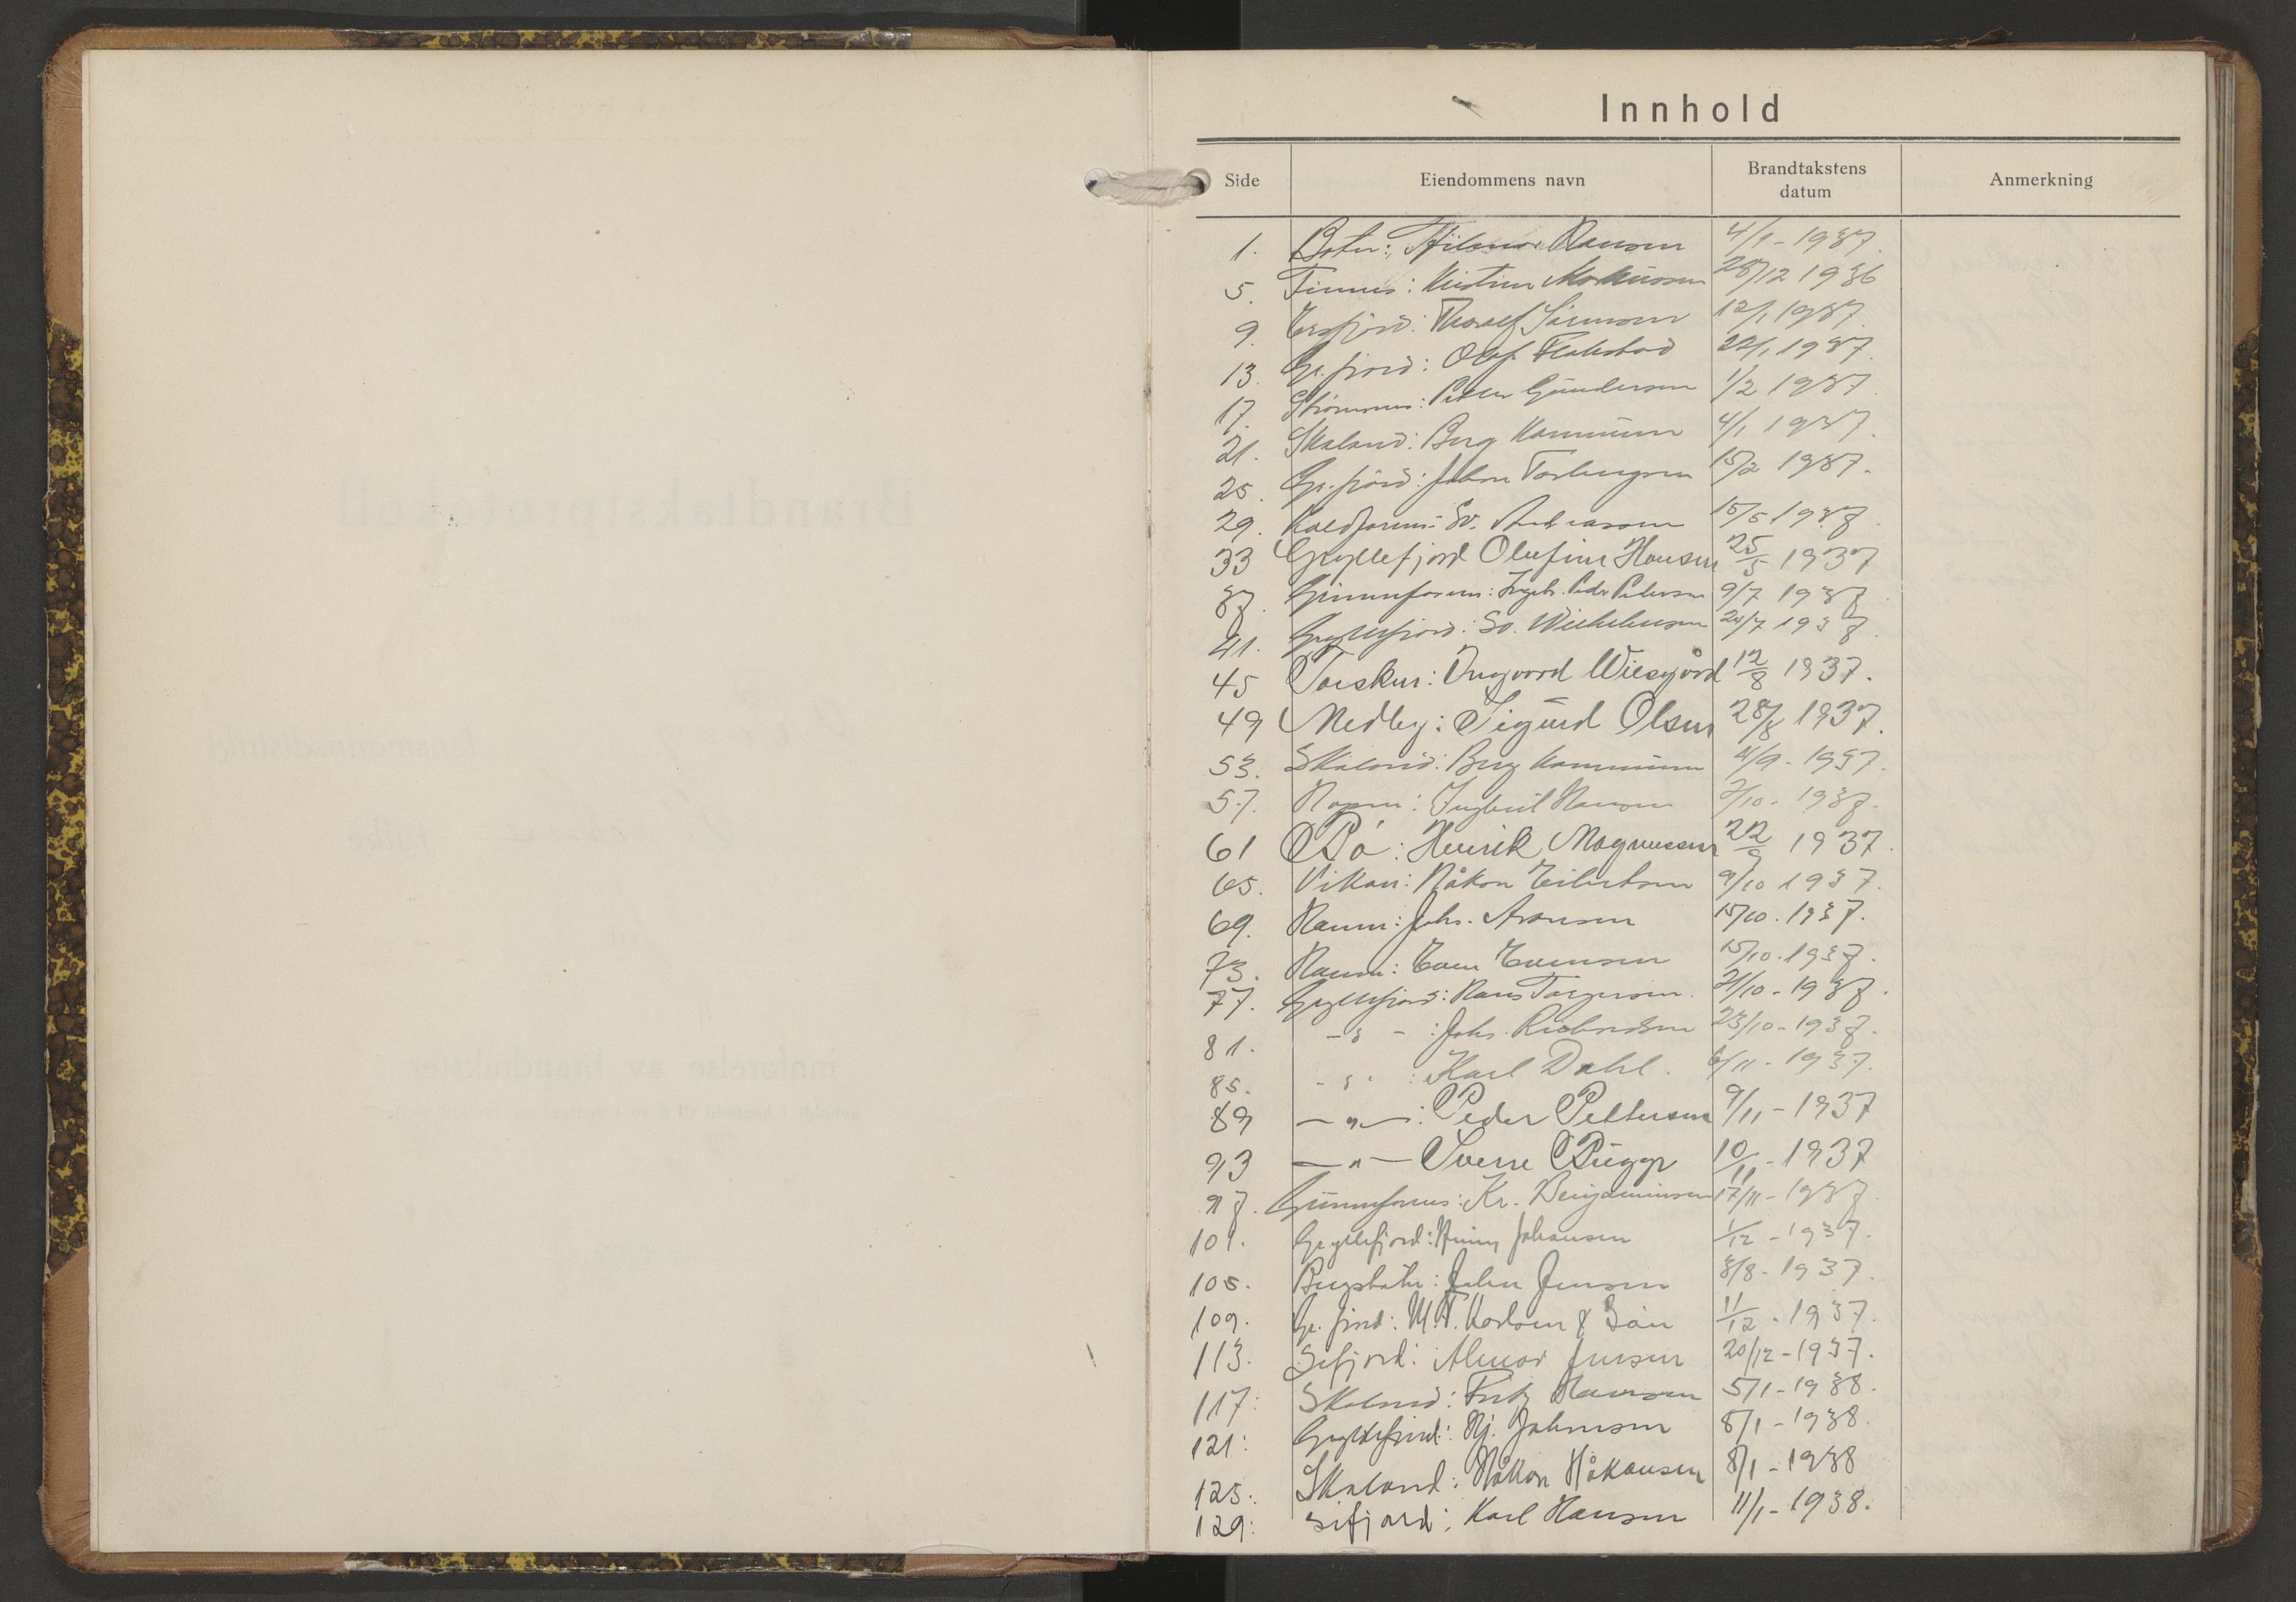 Innhold
Side Eiendommens navn Brandtakstens datum Anmerkning
1. Botn: Hilmar Hansen 4/1-1937.
5. Finnes: Kristine Markussen 28/12 1936
9. Ersfjord: Thoralf Simonsen 12/1 1937.
13. Gr.fjord: Olaf Flakstad 22/1 1937.
17. Strømmen: Peder Gundersen 1/2 1937
21. Skaland: Berg Kommune 4/1 1937.
25. Gr.fjord: Johan Torbergsen 15/2 1937.
29. Kaldfarnes: Andreassen 15/5 1937.
33 Gryllefjord Olufine Hansen 25/5 1937
37. Gunnfarnes: Peder Pedersen 9/7 1937
41. Gryllefjord: Wilhelmsen 24/7 1937.
45 Torsken: Ingvard Wiesgård 12/8 1937.
49 Medby: Sigurd Olsen 28/8 1937.
53. Skaland: Berg Kommune 4/9-1937.
57. Hopen: Ingbril Hansen 2/10-1937.
61 Bø: Henrik Magnussen 22/9 1937.
65. Vikan: Håkon Eilertsen 9/10 1937.
69. Hamn: Johs. Aronsen 15/10.1937.
73. Hamn: Even Evensen 15/10.1937.
77. Gryllefjord: Hans Torgersen. 21/10-1937.
81. -"-: Johs. Richardsen 23/10-1937.
85. -"-: Karl Dahl. 6/11-1937.
89 -"-: Peder Pettersen 9/11-1937
93 -"- Sverre Bugge 10/11-1937
97. Gunnfarnes: Kr. Benjaminsen 17/11-1937
101. Gryllefjord: Johansen 1/12-1937.
105. Johan Jensen 3/8-1937.
109. Gr.fjord: M.T. Karlsen & Søn 11/12-1937.
113. Sifjord: Almar Jensen 20/12-1937.
117: Skaland: Fritz Hansen 5/1-1938.
121: Gryllefjord: Hj. Johansen 8/1-1938.
125: Skaland: Håkon Håkonsen 8/1-1938
129: Sifjord: Karl Hansen 11/1-1938.